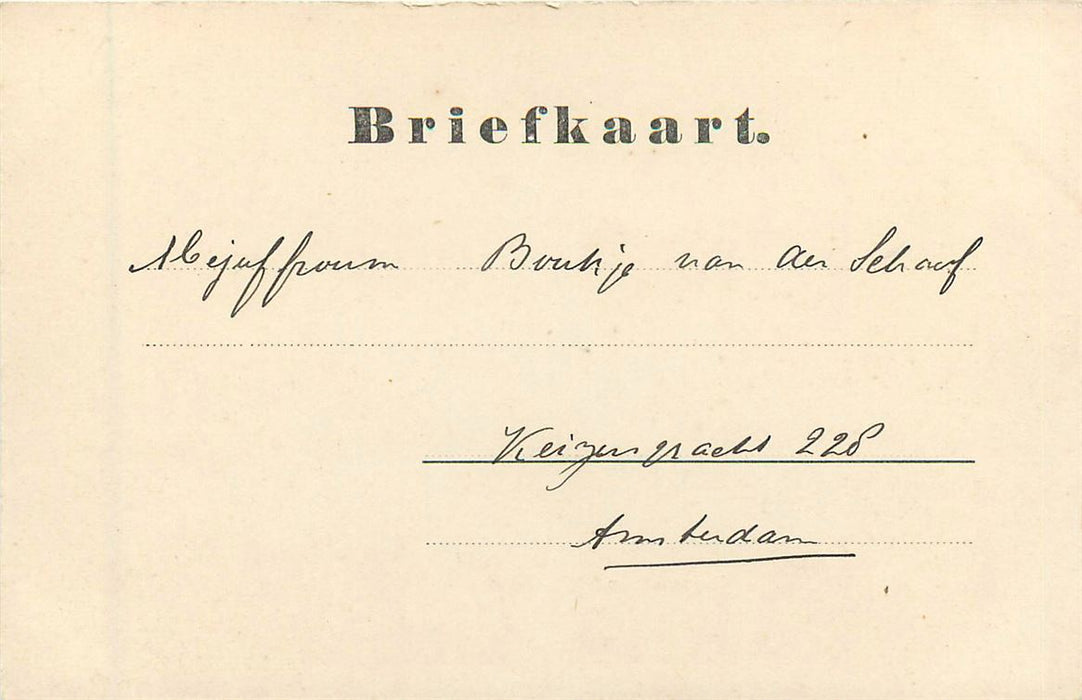 Briefkaart.
Mejuffrouw Boukje van der Schaaf
Keizersgracht 228
Amsterdam